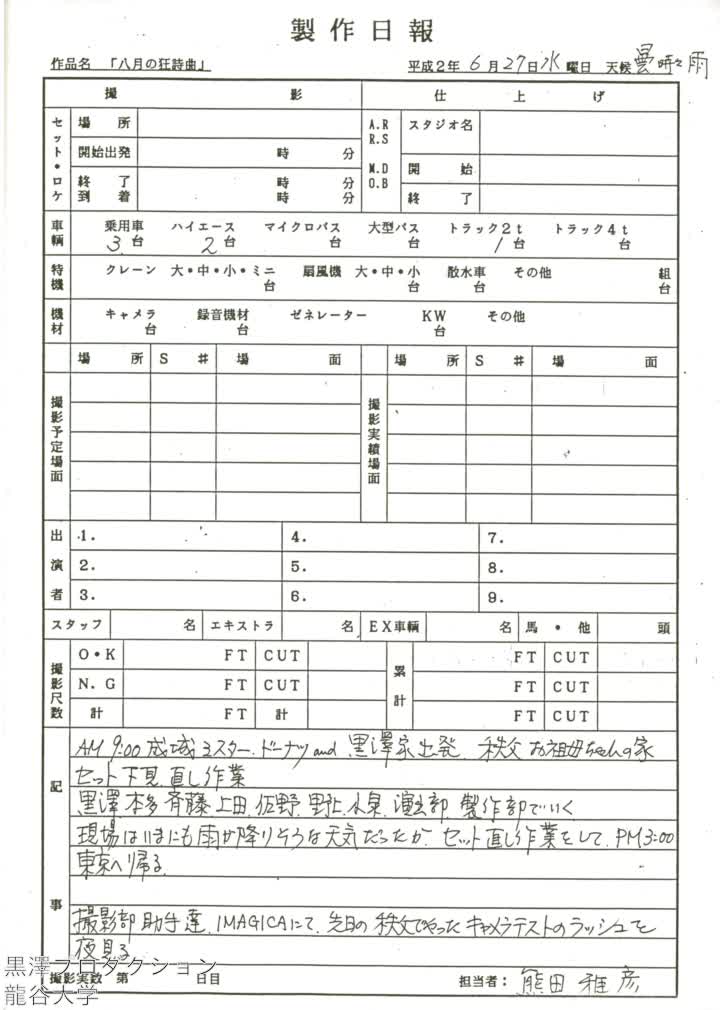 製作日報
作品名 「八月の狂詩曲」 平成2年 6月27日水曜日 天候 曇時々雨
撮影 仕上げ
セット・ロケ 場所 A.R R.S M.D O.B スタジオ名
開始出発 時 分 開始
終了到着 時 分 時 分 終了
車輌 乗用車 3台 ハイエース 2台 マイクロバス 台 大型バス 台 トラック2t 1台 トラック4t 台
特機 クレーン 大・中・小・ミニ 台 扇風機 大・中・小 台 散水車 台 その他 組 台
機材 キャメラ 台 録音機材 台 ゼネレーター KW 台 その他
場所 S# 場面 場所 S# 場面
撮影予定場面 撮影実績場面
出演者 1. 4. 7.
2. 5. 8.
3. 6. 9.
スタッフ 名 エキストラ 名 EX車輌 名 馬・他 頭
撮影尺数 O・K FT CUT 累計 FT CUT
N.G FT CUT FT CUT
計 FT 計 FT CUT
記事
AM 9:00 成城ミスター.ドーナツ and 黒澤家出発. 秩父 お祖母ちゃんの家
セット下見.直し作業
黒澤 本多 斉藤 上田.佐野.野上.小泉.演出部.製作部でいく
現場はいまにも雨が降りそうな天気だったが.セット直し作業をして.PM3:00
東京へ帰る.
撮影部助手達.IMAGICAにて.先日の秩父でやったキャメラテストのラッシュを
夜見る
撮影実数 第 日目 担当者: 熊田雅彦
黒澤プロダクション
龍谷大学